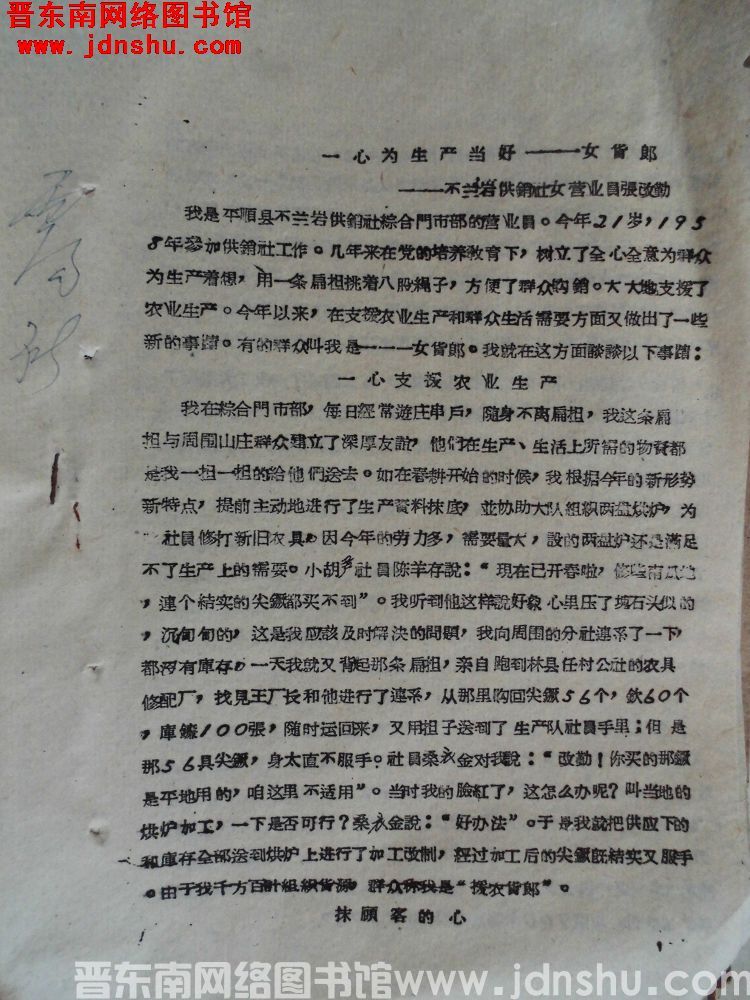 晋东南网络图书馆
www.jdnshu.com
一心为生产当好———女货郎
——不兰岩供銷社女营业員張改勤
我是平順县不兰岩供銷社綜合門市部的营业員。今年21岁，195
8年参加供銷社工作。几年来在党的培养教育下，树立了全心全意为群众
为生产着想，用一条扁担挑着八股繩子，方便了群众购銷。大大地支援了
农业生产。今年以来，在支援农业生产和群众生活需要方面又做出了一些
新的事蹟。有的群众叫我是———女货郎。我就在这方面談談以下事蹟：
一心支援农业生产
我在綜合門市部，每日經常遊庄串戶，随身不离扁担，我这条扁
担与周围山庄群众建立了深厚友誼，他們在生产、生活上所需的物資都
是我一担一担的給他們送去。如在春耕开始的时候，我根据今年的新形势
新特点，提前主动地进行了生产資料抹底，並协助大队組织两盘烘炉，为
社員修打新旧农具，因今年的劳力多，需要量大，設的两盘炉还是滿足
不了生产上的需要。小胡乡社員陈羊存說：“現在已开春啦，修些南瓜地
，連个結实的尖鐝都买不到”。我听到他这样說好象心里压了塊石头似的
，沉甸甸的，这是我应該及时解决的問題，我向周围的分社連系了一下，
都沒有庫存，一天我就又背起那条扁担，亲自跑到林县任村公社的农具
修配厂，找見王厂长和他进行了連系，从那里购回尖鐝56个，欽60个
，庫鑔100張，随时运回来，又用担子送到了生产队社員手里；但是
那56具尖鐝，身太直不服手。社員桑衣金对我說：“改勤！你买的那鐝
是平地用的，咱这里不适用”。当时我的臉紅了，这怎么办呢？叫当地的
烘炉加工，一下是否可行？桑衣金說：“好办法”。于是我就把供应下的
和庫存全部送到烘炉上进行了加工改制，經过加工后的尖鐝既結实又服手
。由于我千方百計組織货源，群众称我是“援农货郎”。
抹顧客的心
晋东南网络图书馆www.jdnshu.com